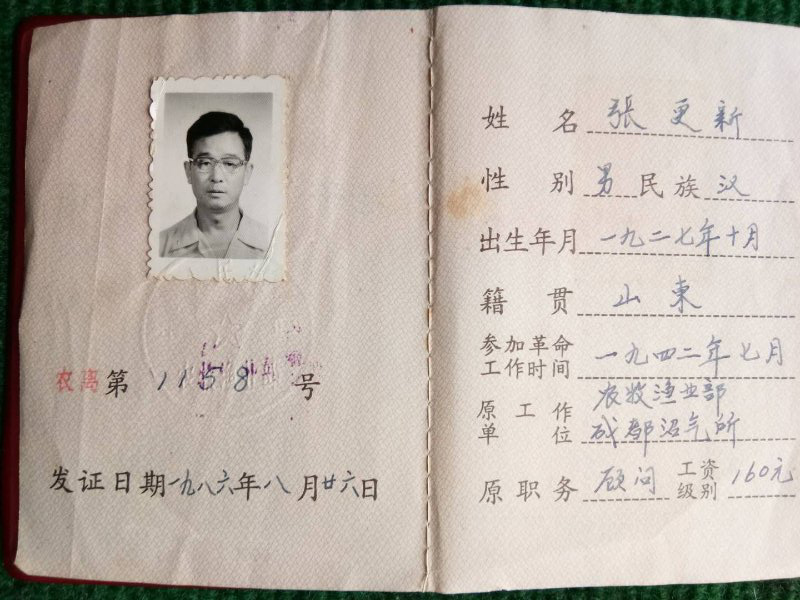 农离第1158号
发证日期一九八六年八月廿六日
姓名 張更新
性别 男 民族 汉
出生年月 一九二七年十月
籍贯 山東
参加革命
工作时间 一九四二年七月
原工作
单位 农牧渔业部
成都沼气所
原职务 顾问 工资
级别 160元